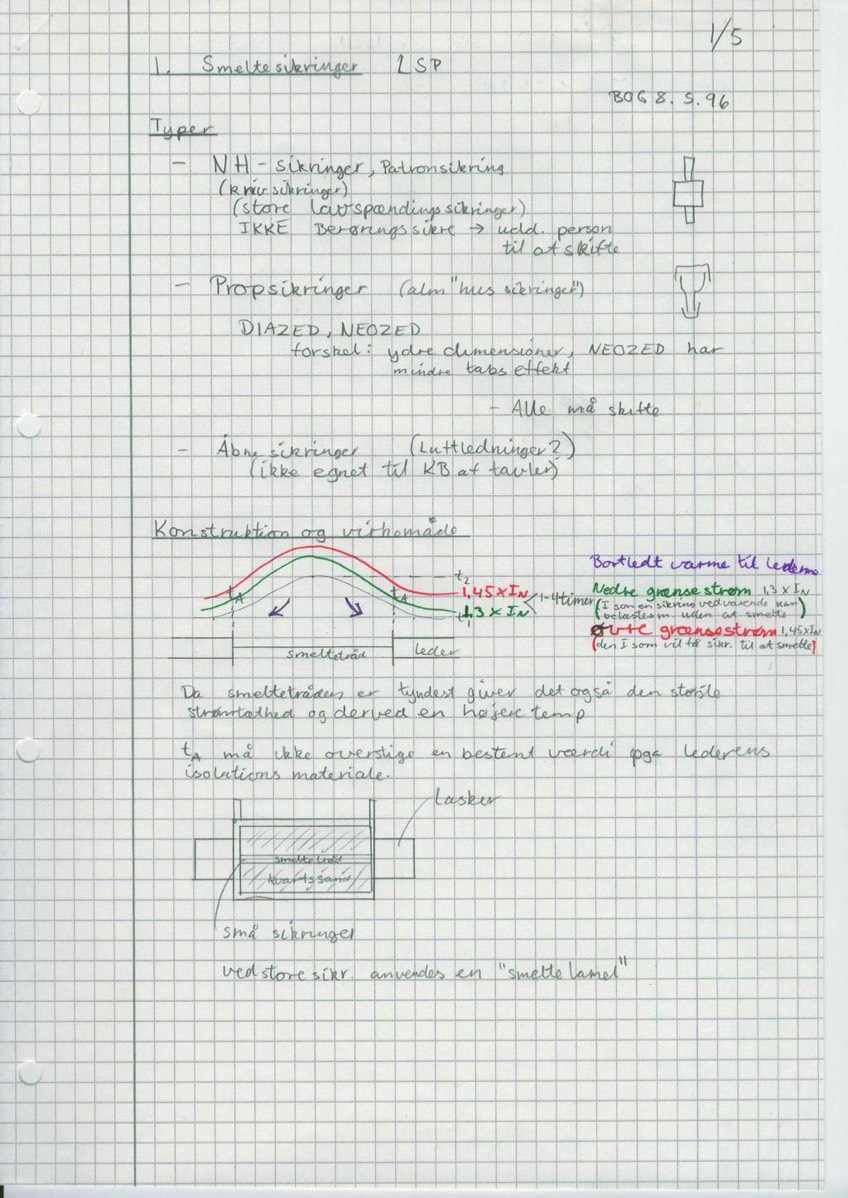 1/5
1. Smeltesikringer LSP
BOG 8. S. 96
Typer
- NH - sikringer, Patronsikring
(knivsikringer)
(store lavspændingssikringer)
IKKE Berøringssikre → udd. person
til at skifte
- Propsikringer (alm "hus sikringer")
DIAZED, NEOZED
forskel: ydre dimensioner, NEOZED har
mindre tabseffekt
- Alle må skifte
- Åbne sikringer (Luftledninger?)
(ikke egnet til KB af tavler)
Konstruktion og virkemåde
Bortledt varme til lederne
t₂
tA tA 1,45 x IN 1-4 timer
1,3 x IN
Nedre grænsestrøm 1,3 x IN
(I som en sikring vedvarende kan
belastes m. uden at smelte)
Øvre grænsestrøm 1,45xIN
(den I som vil få sikr. til at smelte)
smeltetråd leder
Da smeltetråden er tyndest giver det også den største
strømtæthed og derved en højere temp
tA må ikke overstige en bestemt værdi pga lederens
isolations materiale.
Lasker
smeltetråd
kvartssand
små sikringer
ved store sikr. anvendes en "smeltelamel"